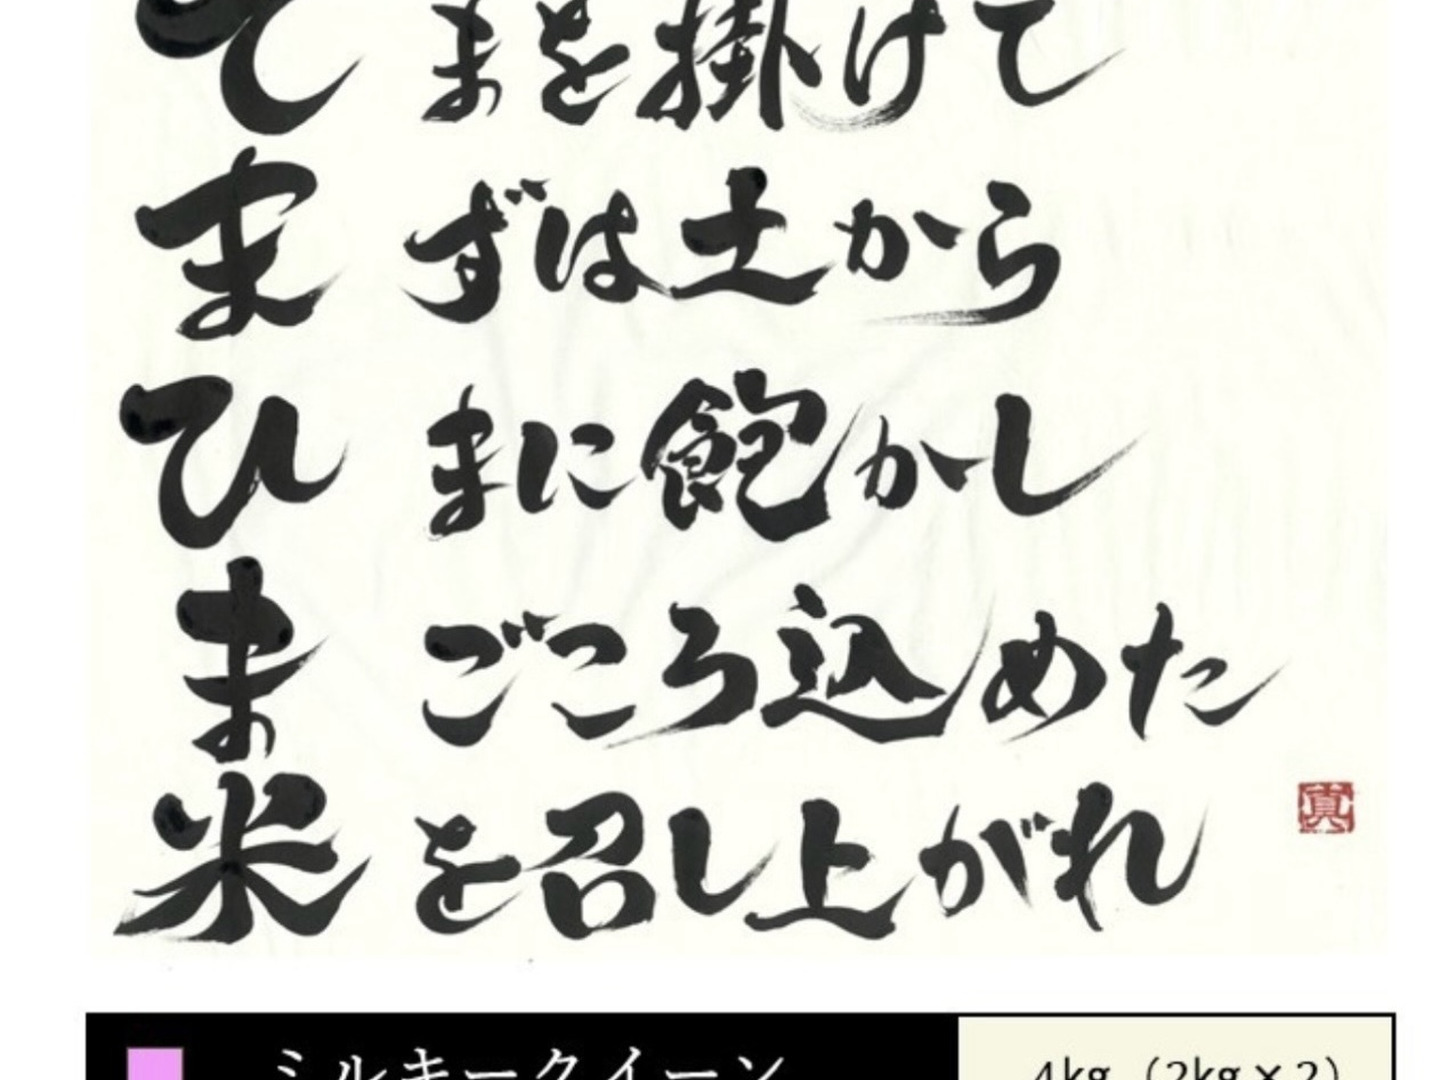 てまを掛けて
まずは土から
ひまに飽かし
まごころ込めた
米を召し上がれ
真
ミルキークイーン
4kg（2kg×2）